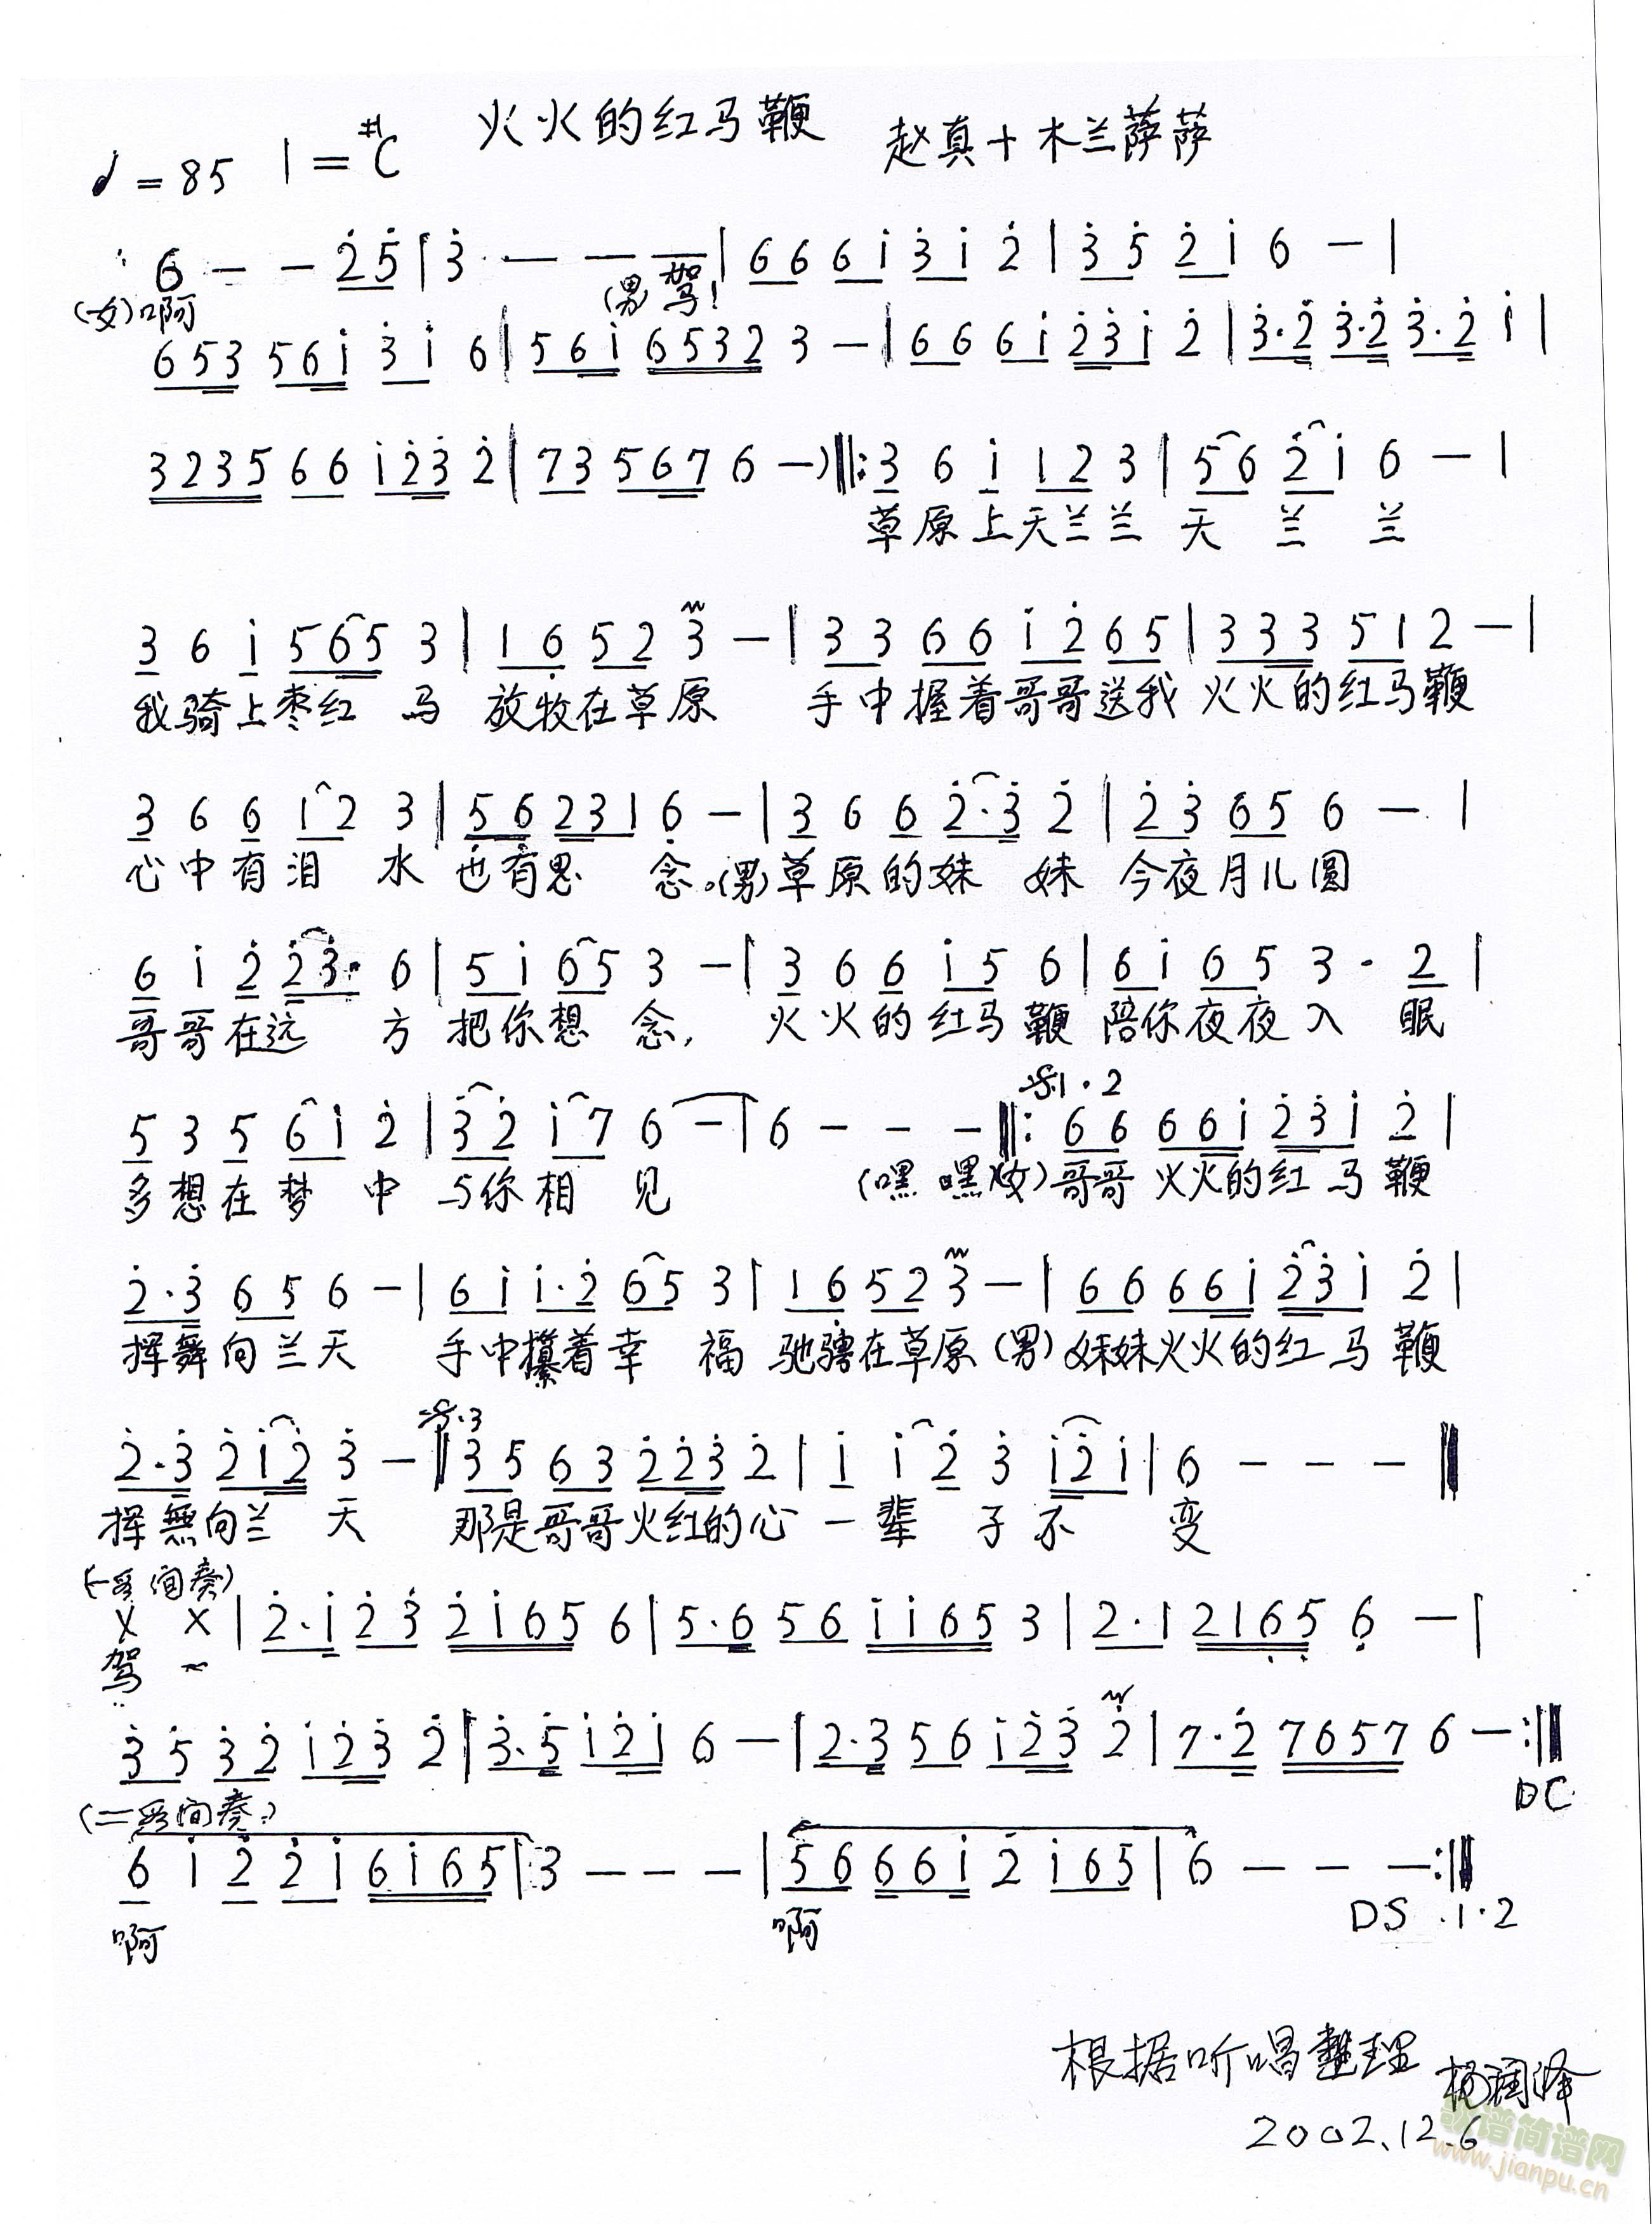 火火的红马鞭
赵真+木兰萨萨
♩=85 1=#C
6 - - 2̇5̇ | 3̇ - - - | 6 6 6 i 3̇ i 2̇ | 3̇ 5̇ 2̇ i 6 - |
(女)啊 (男)驾!
6 5 3 5 6 i 3̇ i 6 | 5 6 i 6 5 3 2 3 - | 6 6 6 i 2̇ 3̇ i 2̇ | 3̇·2̇ 3̇·2̇ 3̇·2̇ i |
3 2 3 5 6 6 i 2̇ 3̇ 2̇ | 7 3 5 6 7 6 -) ‖: 3 6 i 1 2 3 | 5 6 2̇ i 6 - |
草原上天兰兰 天 兰 兰
3 6 i 5 6 5 3 | 1 6̣ 5 2 3 - | 3 3 6 6 i 2̇ 6 5 | 3 3 3 5 1 2 - |
我骑上枣红 马 放牧在草原 手中握着哥哥送我 火火的红马鞭
3 6 6 1 2 3 | 5̣ 6̣ 2 3 1 6̣ - | 3 6 6 2̇·3̇ 2̇ | 2̇ 3̇ 6 5 6 - |
心中有泪 水 也有思 念。(男)草原的妹 妹 今夜月儿圆
6 i 2̇ 2̇ 3̇· 6 | 5 i 6 5 3 - | 3 6 6 i 5 6 | 6 i 6 5 3 · 2 |
哥哥在远 方 把你想 念, 火火的红马 鞭 陪你夜夜入 眠
𝄋1·2
5 3 5 6 i 2̇ | 3̇ 2̇ i 7 6 - | 6 - - - ‖: 6 6 6 6 i 2̇ 3̇ i 2̇ |
多想在梦 中 与你相 见 (嘿 嘿女)哥哥 火火的红 马 鞭
2̇·3̇ 6 5 6 - | 6 i i·2̇ 6 5 3 | 1 6̣ 5 2 3 - | 6 6 6 6 i 2̇ 3̇ i 2̇ |
挥舞向兰天 手中攥着幸 福 驰骋在草原(男)妹妹火火的红 马 鞭
𝄋·3
2̇·3̇ 2̇ i 2̇ 3̇ - ‖ 3̇ 5 6 3 2̇ 2̇ 3̇ 2̇ | i i 2̇ 3̇ i 2̇ i | 6 - - - ‖
挥無向兰 天 那是哥哥火红的心 一 辈 子 不 变
(一段间奏)
X X | 2̇·i 2̇ 3̇ 2̇ i 6 5 6 | 5·6 5 6 i i 6 5 3 | 2·1 2 1 6̣ 5̣ 6̣ - |
驾 〃
3̇ 5̇ 3̇ 2̇ i 2̇ 3̇ 2̇ | 3̇·5̇ i 2̇ i 6 - | 2·3 5 6 i 2̇ 3̇ 2̇ | 7·2̇ 7 6 5 7 6 - :‖
DC
(二段间奏)
6 i 2̇ 2̇ i 6 i 6 5 | 3 - - - | 5 6 6 6 i 2̇ i 6 5 | 6 - - - :‖
啊 啊 DS .1·2
根据听唱整理 杨润泽
2002.12.6
歌谱简谱网
www.jianpu.cn